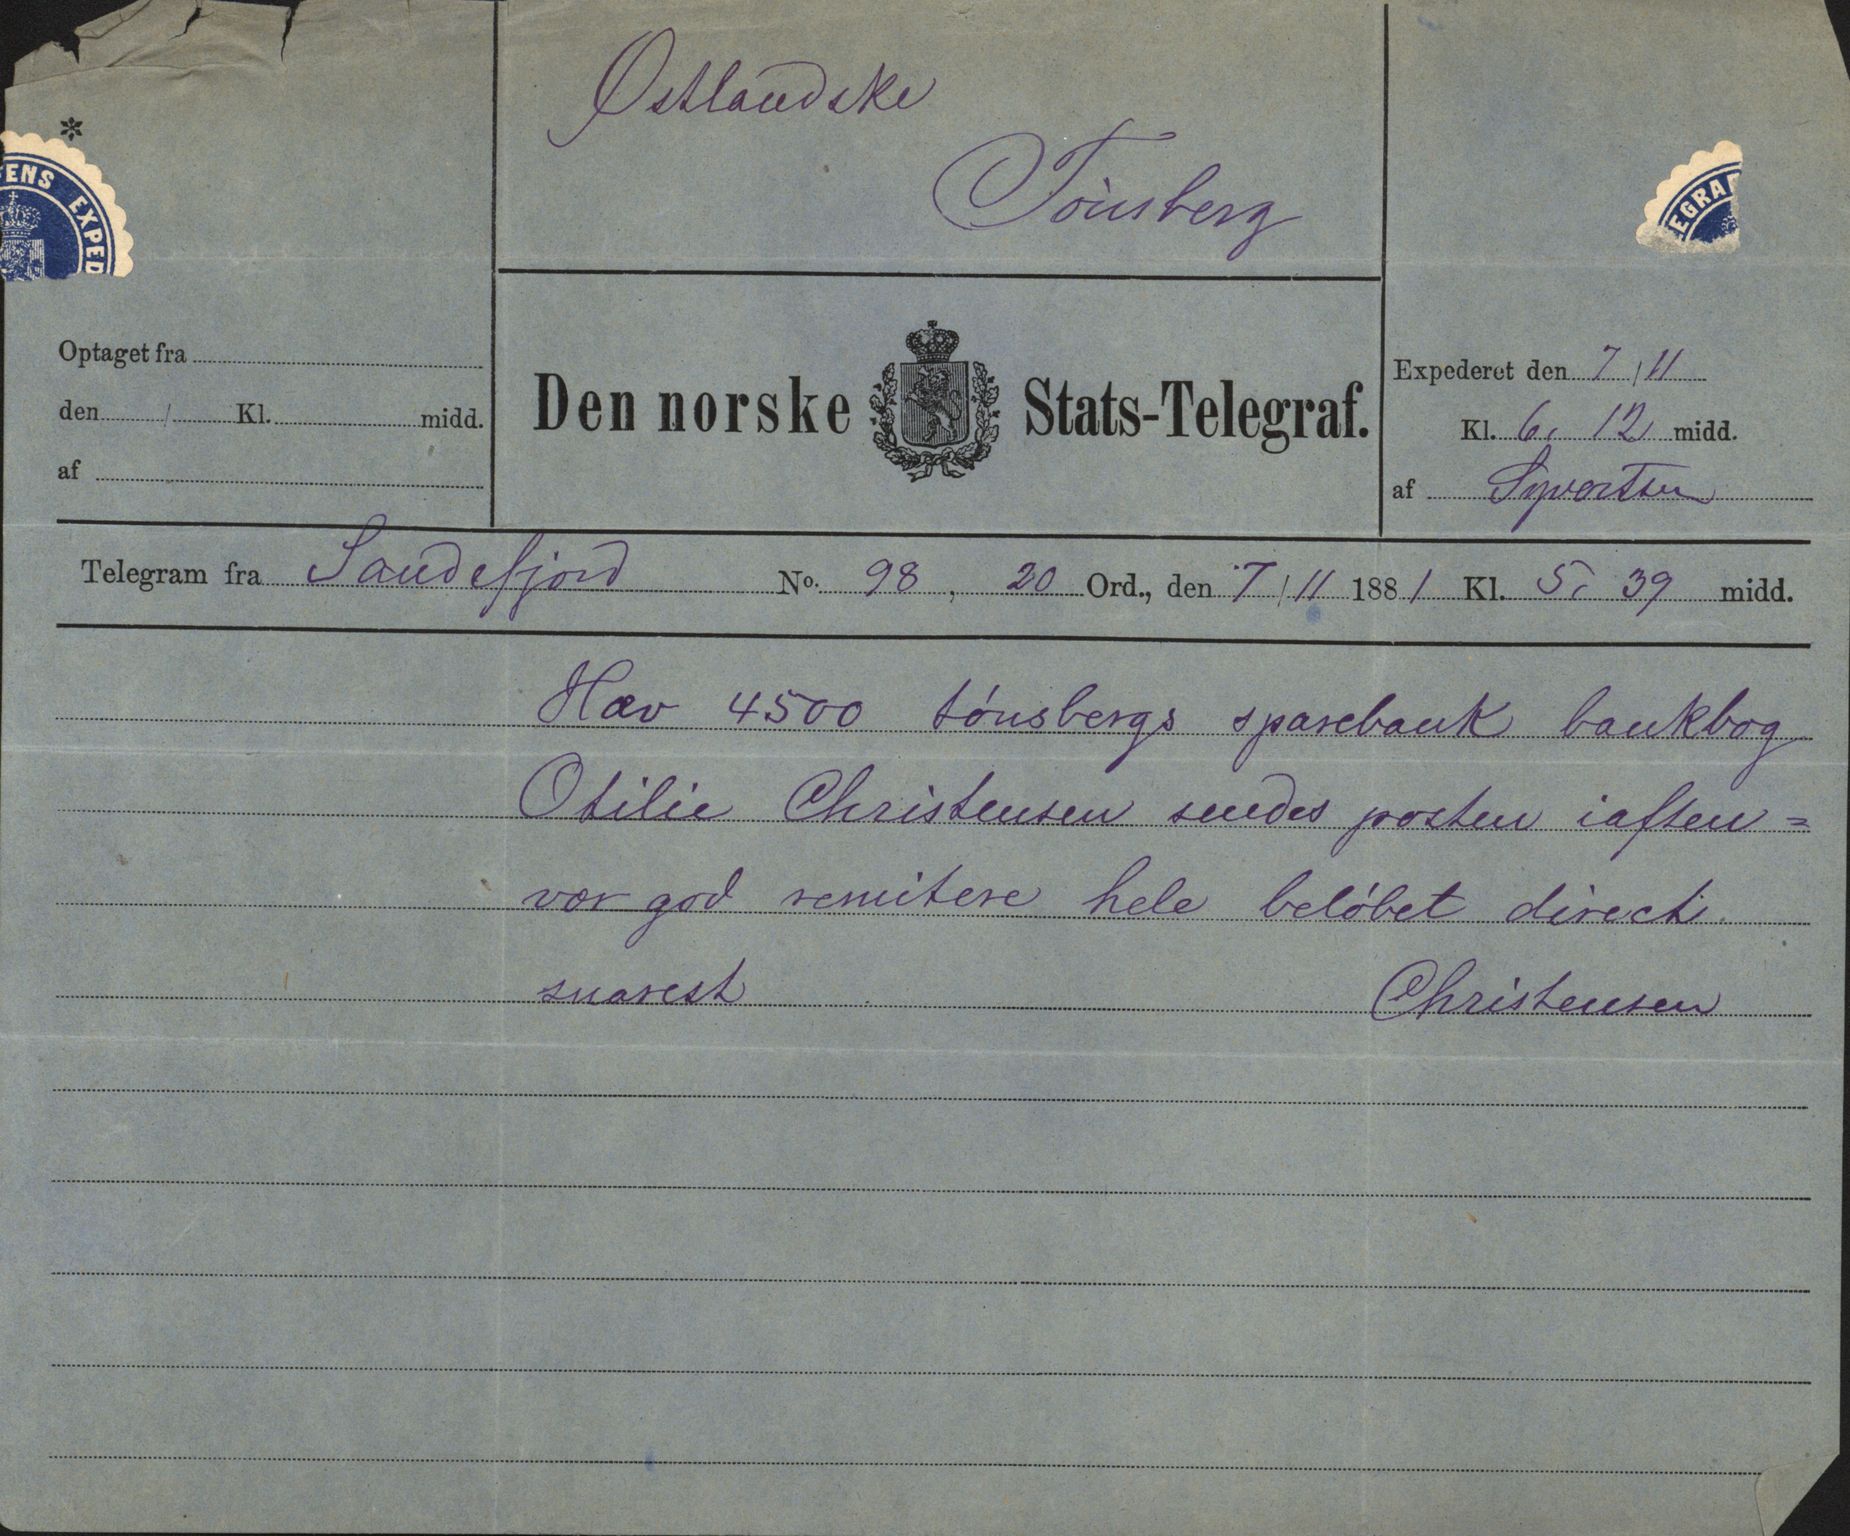 Østlandske
Tónsberg
*
ENS EXPED
EGRA
Optaget fra
den / Kl. midd.
af
Den norske Stats-Telegraf.
Expederet den 7/11
Kl. 6. 12 midd.
af Syvertsen
Telegram fra Sandefjord No. 98, 20 Ord., den 7/11 1881 Kl. 5. 39 midd.
Hæv 4500 tónsbergs sparebank bankbog
Otilie Christensen sendes posten iaften =
vær god remitere hele belóbet direct
snarest Christensen